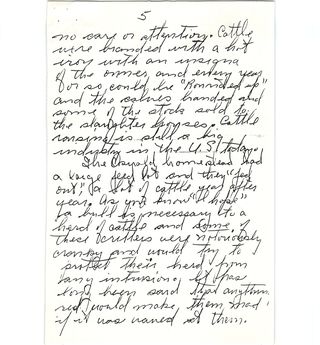 5
no say or attention. Cattle
were branded with a hot
iron with an insigna
of the owner and every year
or so, could be "Rounded up"
and the calves branded and
some of the stock sold to
the slaughter houses. Cattle
raising is still a big
industry in the U.S. today.
The Oswald homestead had
a large feed lot and they "fed
out" a lot of cattle year after
year. As you know "I hope"
a bull is necessary to a
herd of cattle and some of
these critters were notoriously
cranky and would try to
protect their herd from
any intrusion, it has
long been said that anything
red would make them mad
if it was waved at them.